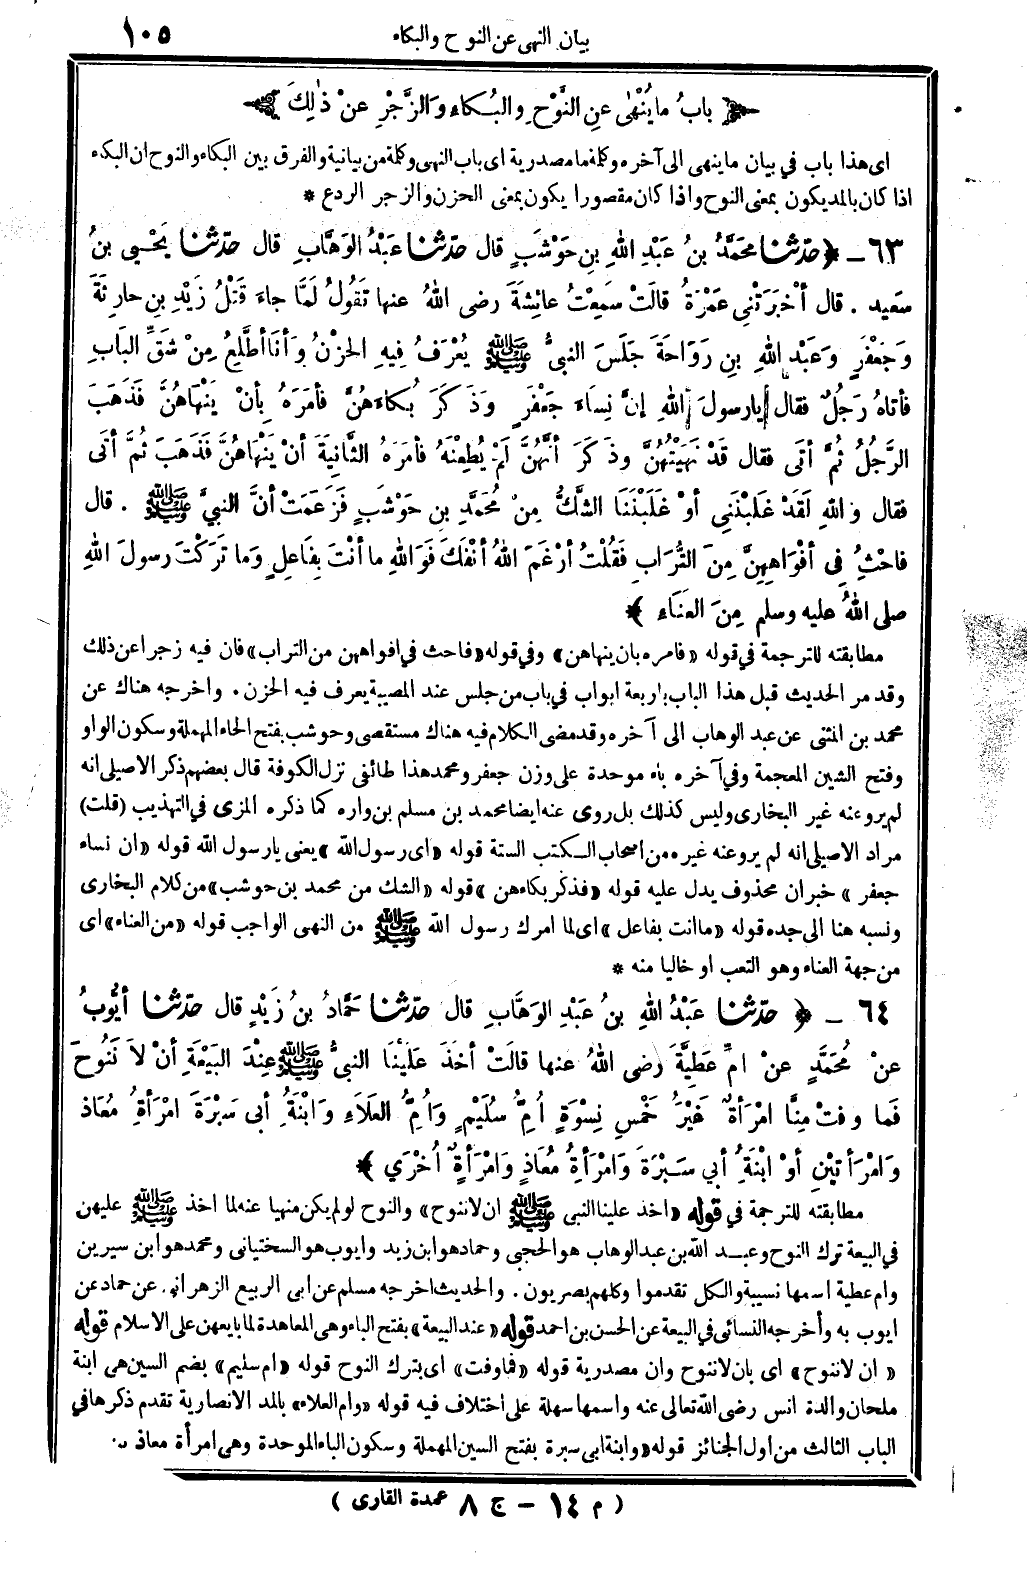 بيان النهي عن النوح والبكاء
١٠٥
باب ما يُنْهَى عنِ النَّوْحِ والبُكاءِ والزَّجْرِ عنْ ذٰلِكَ
اى هذا باب في بيان ما ينهى الى آخره وكلمة ما مصدرية اى باب النهى وكلمة من بيانية والفرق بين البكاء والنوح ان البكاء
اذا كان بالمد يكون بمعنى النوح واذا كان مقصورا يكون بمعنى الحزن والزجر الردع *
٦٣ - ﴿ حدّثنا محَمَّدُ بنُ عَبْدِ اللهِ بنِ حَوْشَبٍ قال حدّثنا عَبْدُ الوَهَّابِ قال حدّثنا يَحْيى بنُ
سَعِيد . قال أخْبَرَتْنِي عَمْرَةُ قالَتْ سَمِعْتُ عائِشَةَ رضى اللهُ عنها تَقُولُ لَمَّا جاءَ قَتْلُ زَيْدِ بنِ حارِثَةَ
وَجَعْفَرٍ وَعَبْدِ اللهِ بنِ رَوَاحَةَ جَلَسَ النبىُّ ﷺ يُعْرَفُ فِيهِ الحزْنُ وَأنَا أطَّلِعُ مِنْ شَقِّ البَابِ
فأتاهُ رَجُلٌ فقال يارسولَ اللهِ إنَّ نِساءَ جَعْفَرٍ وَذَكَرَ بُكاءَهُنَّ فأمَرَهُ بِأنْ يَنْهَاهُنَّ فَذَهَبَ
الرَّجُلُ ثُمَّ أتَى فقال قَدْ نَهَيْتُهُنَّ وذَكَرَ أنَّهُنَّ لَمْ يُطِعْنَهُ فأمَرَهُ الثَّانِيَةَ أنْ يَنْهَاهُنَّ فَذَهَبَ ثُمَّ أتَى
فقال واللهِ لَقَدْ غَلَبْنَنِى أوْ غَلَبْنَنَا الشَّكُّ مِنْ مُحَمَّدِ بنِ حَوْشَبٍ فَزَعَمَتْ أنَّ النبيَّ ﷺ . قال
فاحْثُ فِي أفْوَاهِهِنَّ مِنَ التُّرَابِ فَقُلْتُ أرْغَمَ اللهُ أنْفَكَ فَوَاللهِ ما أنْتَ بِفَاعِلٍ وَما تَرَكْتَ رسولَ اللهِ
صلى اللهُ عليه وسلم مِنَ العَنَاءِ ﴾
مطابقته للترجمة في قوله «فامره بان ينهاهن» وفي قوله «فاحث في افواههن من التراب» فان فيه زجرا عن ذلك
وقد مر الحديث قبل هذا الباب باربعة ابواب في باب من جلس عند المصيبة يعرف فيه الحزن . واخرجه هناك عن
محمد بن المثنى عن عبد الوهاب الى آخره وقد مضى الكلام فيه هناك مستقصى وحوشب بفتح الحاء المهملة وسكون الواو
وفتح الشين المعجمة وفي آخره باء موحدة على وزن جعفر ومحمد هذا طائفى نزل الكوفة قال بعضهم ذكر الاصيلى انه
لم يرو عنه غير البخارى وليس كذلك بل روى عنه ايضا محمد بن مسلم بن واره كما ذكره المزى في التهذيب (قلت)
مراد الاصيلى انه لم يرو عنه غيره من اصحاب الكتب الستة قوله «اى رسول الله» يعنى يارسول الله قوله «ان نساء
جعفر» خبر ان محذوف يدل عليه قوله «فذكر بكاءهن» قوله «الشك من محمد بن حوشب» من كلام البخارى
ونسبه هنا الى جده قوله «ما انت بفاعل» اى لما امرك رسول الله ﷺ من النهى الواجب قوله «من العناء» اى
من جهة العناء وهو التعب او خاليا منه *
٦٤ - ﴿ حدّثنا عَبْدُ اللهِ بنُ عَبْدِ الوَهَّابِ قال حدّثنا حَمَّادُ بنُ زَيْدٍ قال حدّثنا أيُّوبُ
عنْ مُحَمَّدٍ عنْ امِّ عَطِيَّةَ رضى اللهُ عنها قالَتْ أخَذَ عَلَيْنَا النبىُّ ﷺ عِنْدَ البَيْعَةِ أنْ لاَ نَنُوحَ
فَما وفَتْ مِنَّا امْرَأةٌ غَيْرُ خَمْسِ نِسْوَةٍ أُمِّ سُلَيْمٍ وَأُمِّ العَلاَءِ وَابْنَةِ أبى سَبْرَةَ امْرَأةِ مُعَاذ
وَامْرَأتَيْنِ أوْ ابْنَةِ أبي سَبْرَةَ وَامْرَأةِ مُعَاذٍ وَامْرَأةٍ أُخْرَي ﴾
مطابقته للترجمة في قوله «اخذ علينا النبى ﷺ ان لاننوح» والنوح لو لم يكن منهيا عنه لما اخذ ﷺ عليهن
في البيعة ترك النوح وعبد الله بن عبد الوهاب هو الحجبى وحماد هو ابن زيد وايوب هو السختيانى ومحمد هو ابن سيرين
وام عطية اسمها نسيبة والكل تقدموا وكلهم بصريون . والحديث اخرجه مسلم عن ابى الربيع الزهرانى عن حماد عن
ايوب به وأخرجه النسائى في البيعة عن الحسن بن احمد قوله «عند البيعة» بفتح الباء وهى المعاهدة لما بايعهن على الاسلام قوله
«ان لاننوح» اى بان لاننوح وان مصدرية قوله «فماوفت» اى بترك النوح قوله «ام سليم» بضم السين هى ابنة
ملحان والدة انس رضى الله تعالى عنه واسمها سهلة على اختلاف فيه قوله «وام العلاء» بالمد الانصارية تقدم ذكرها في
الباب الثالث من اول الجنائز قوله «وابنة ابى سبرة بفتح السين المهملة وسكون الباء الموحدة وهى امرأة معاذ
( م ١٤ - ج ٨ عمدة القارى )